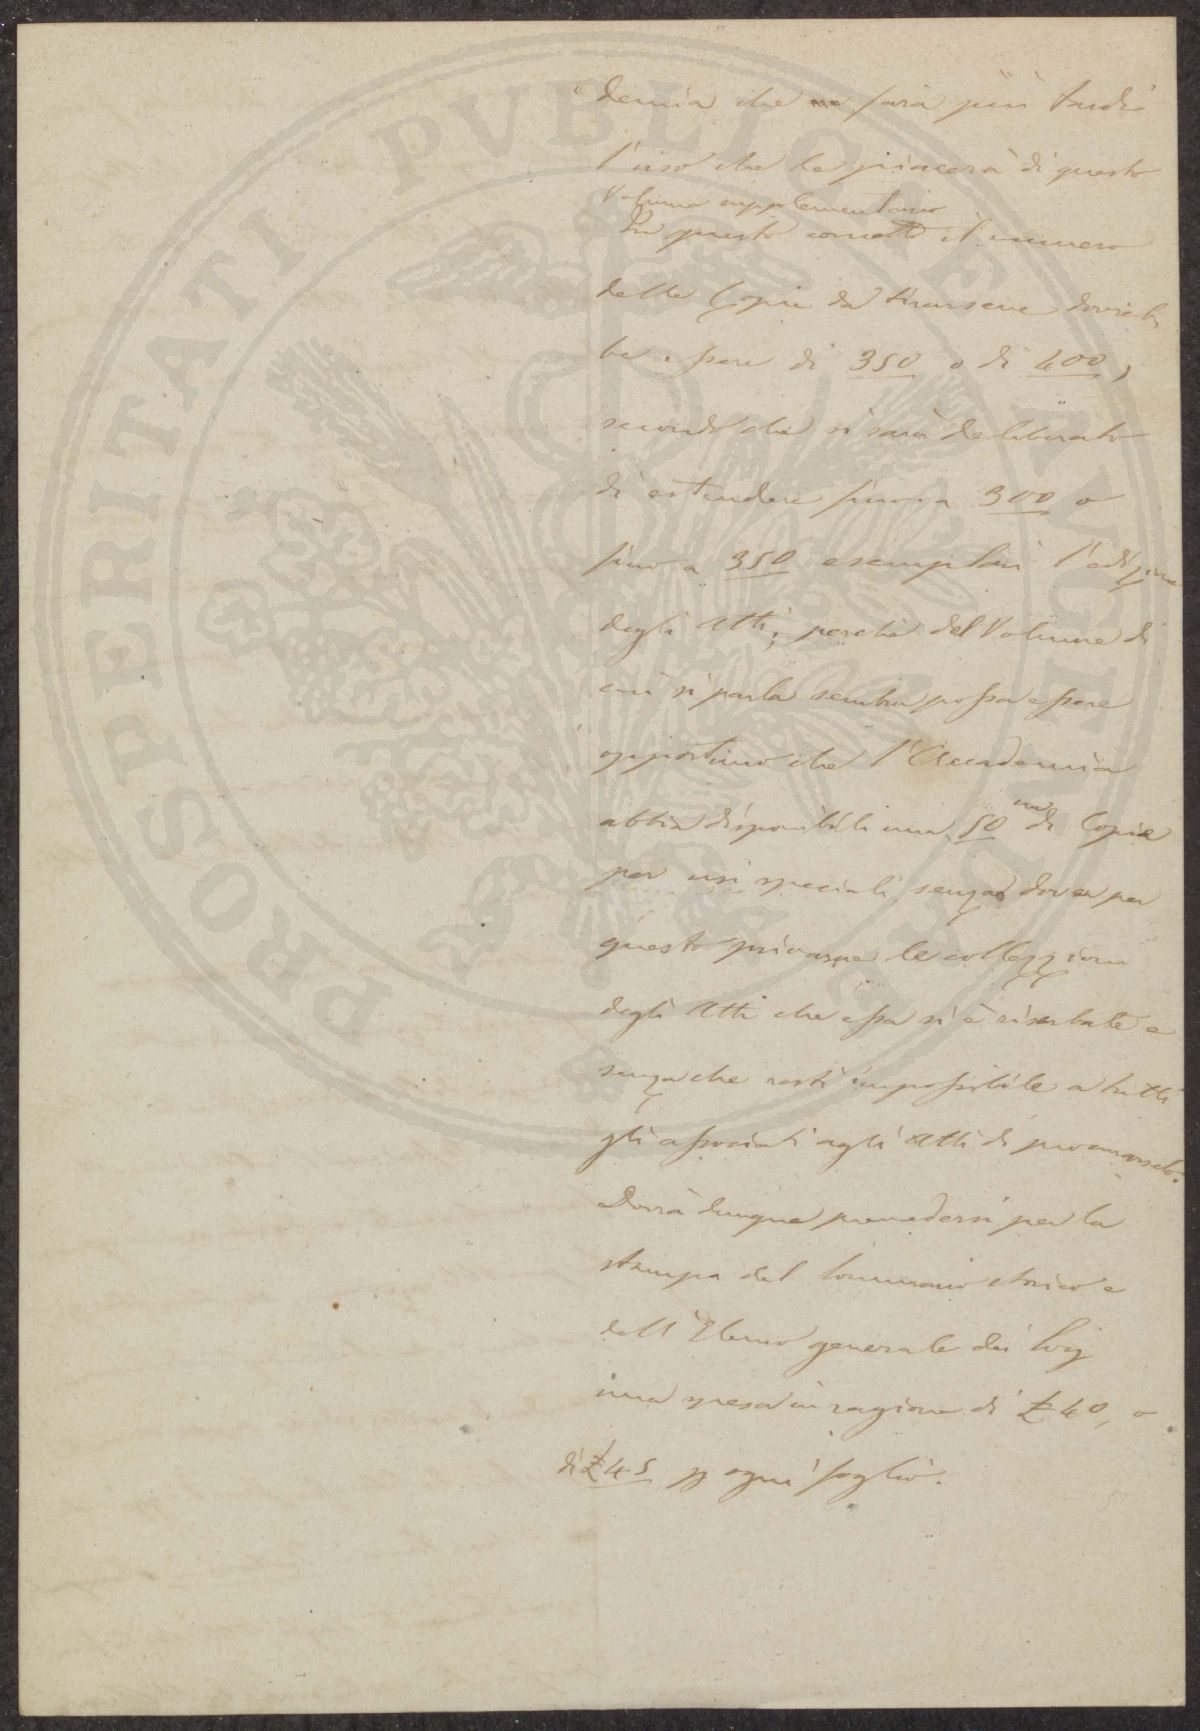 demia che ne farà più tardi
l'uso che le piacerà di questo
Volume supplementario
In questo concetto il numero
delle Copie da tirarsene dovreb
be essere di 350 o di 400,
secondo che si sarà deliberato
di estendere fino a 300 o
fino a 350 esemplari l'edizione
degli Atti; perchè del Volume di
cui si parla sembra possa essere
opportuno che l'Accademia
abbia disponibili una 50na di Copie
per usi speciali, senza dover per
questo privarne le collezzioni
degli Atti che essa si è riserbate e
senza che resti impossibile a tutti
gli associati agli Atti di procurarselo.
Dovrà dunque prevedersi per la
stampa del Sommario storico e
dell'Elenco generale dei Socj
una spesa in ragione di £ 40, o
di £ 45 p ogni foglio.
PROSPERITATI PVBLICAE AVGENDAE